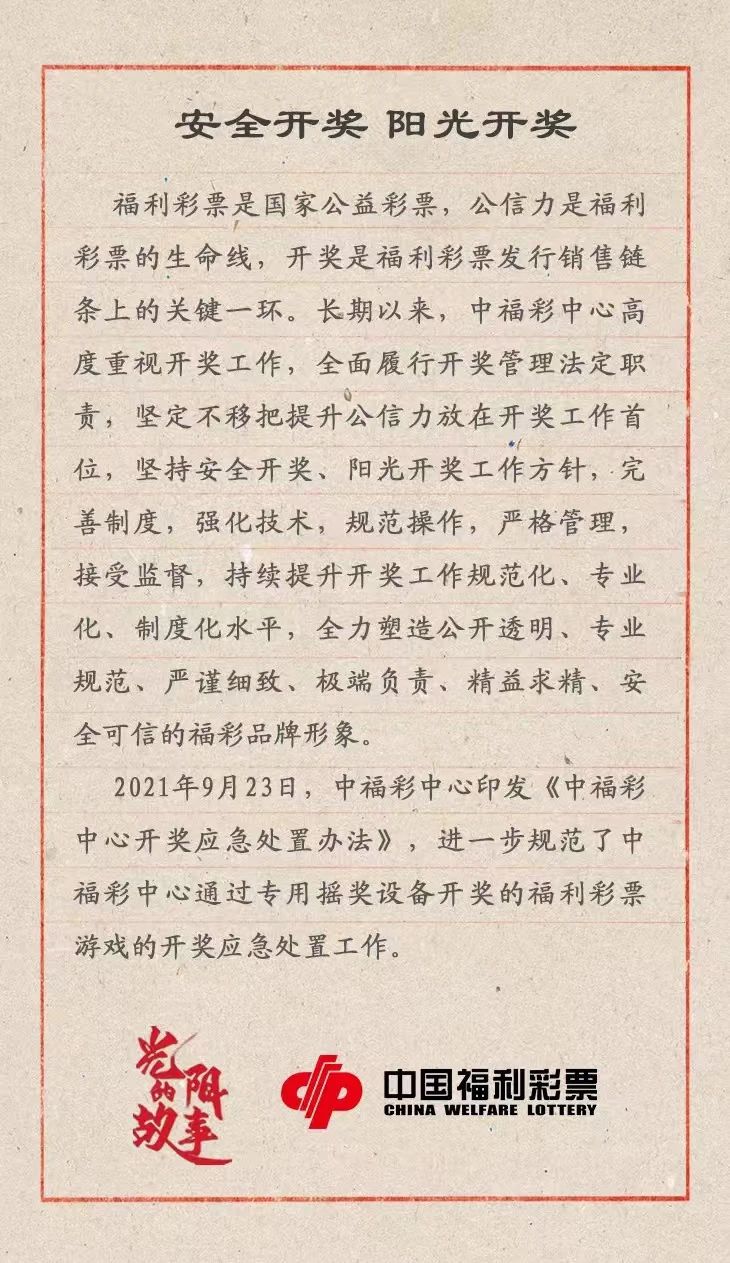 安全开奖 阳光开奖
福利彩票是国家公益彩票，公信力是福利
彩票的生命线，开奖是福利彩票发行销售链
条上的关键一环。长期以来，中福彩中心高
度重视开奖工作，全面履行开奖管理法定职
责，坚定不移把提升公信力放在开奖工作首
位，坚持安全开奖、阳光开奖工作方针，完
善制度，强化技术，规范操作，严格管理，
接受监督，持续提升开奖工作规范化、专业
化、制度化水平，全力塑造公开透明、专业
规范、严谨细致、极端负责、精益求精、安
全可信的福彩品牌形象。
2021年9月23日，中福彩中心印发《中福彩
中心开奖应急处置办法》，进一步规范了中
福彩中心通过专用摇奖设备开奖的福利彩票
游戏的开奖应急处置工作。
光阴
的
故事
中国福利彩票
CHINA WELFARE LOTTERY